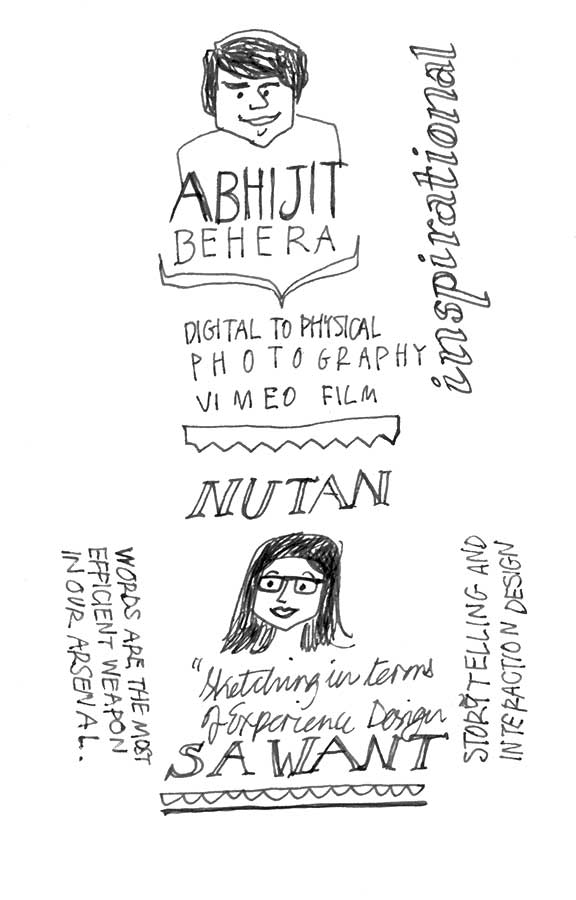 ABHIJIT
BEHERA
inspirational
DIGITAL TO PHYSICAL
PHOTOGRAPHY
VIMEO FILM
NUTAN
WORDS ARE THE MOST
EFFICIENT WEAPON
IN OUR ARSENAL.
"Sketching in terms
of Experience Design
STORYTELLING AND
INTERACTION DESIGN
SAWANT